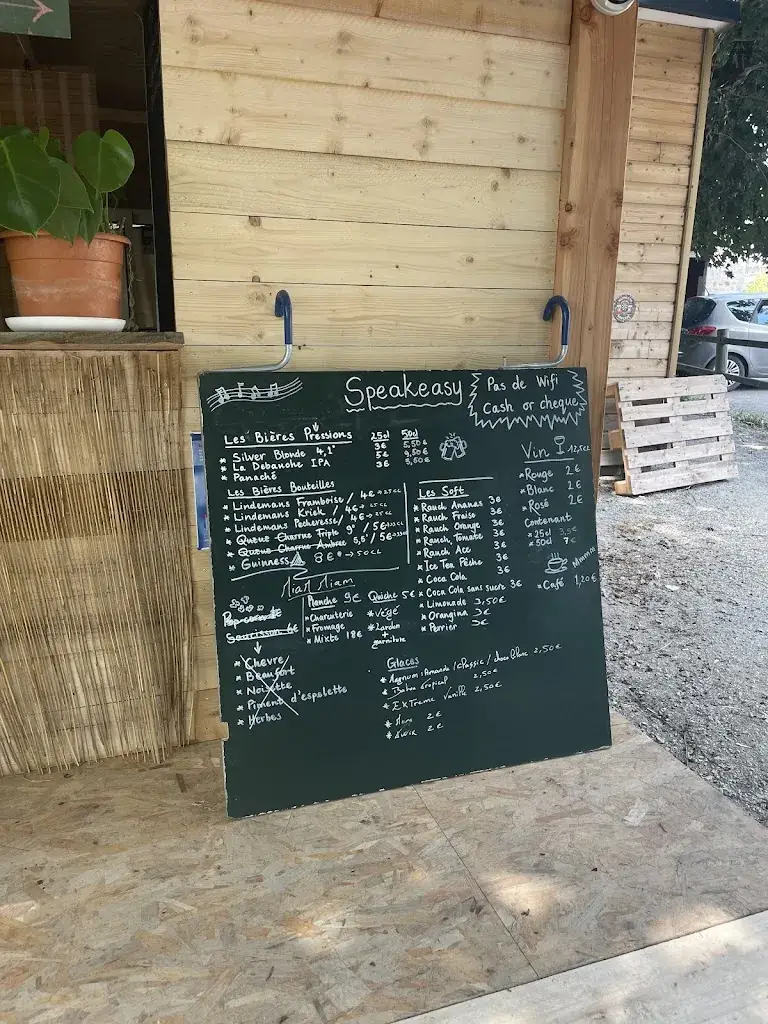 Speakeasy
Pas de Wifi
Cash or cheque
Les Bières Pressions 25cl 50cl
* Silver Blonde 4,1° 3€ 5,50€
* La Debauche IPA 5€ 9,50€
* Panaché 3€ 5,50€
Les Bières Bouteilles
* Lindemans Framboise / 4€ → 25cl
* Lindemans Kriek / 4€ → 25cl
* Lindemans Pecheresse / 4€ → 25cl
* Queue Charrue Triple 9° / 5€ → 33cl
* Queue Charrue Ambrée 5,6° / 5€ → 33cl
* Guinness 8€ → 50cl
Les Soft
* Rauch Ananas 3€
* Rauch Fraise 3€
* Rauch Orange 3€
* Rauch Tomate 3€
* Rauch Ace 3€
* Ice Tea Pêche 3€
* Coca Cola 3€
* Coca Cola sans sucre 3€
* Limonade 3,50€
* Orangina 3€
* Perrier 3€
Vin 12,5cl
* Rouge 2€
* Blanc 2€
* Rosé 2€
Contenant
* 25cl 3,5€
* 50cl 7€
Mmmm
* Café 1,20€
Miam Miam
Pop corn
Saucisson 6€
* Chevre
* Beaufort
* Noisette
* Piment d'espelette
* Herbes
Planche 9€
* Charcuterie
* Fromage
* Mixte 18€
Quiche 5€
* Végé
* Lardon
+
garniture
Glaces
* Magnum: Amande / classic / choco blanc 2,50€
* Tropical 2,50€
* Extreme Vanille 2,50€
* 2€
* 2€